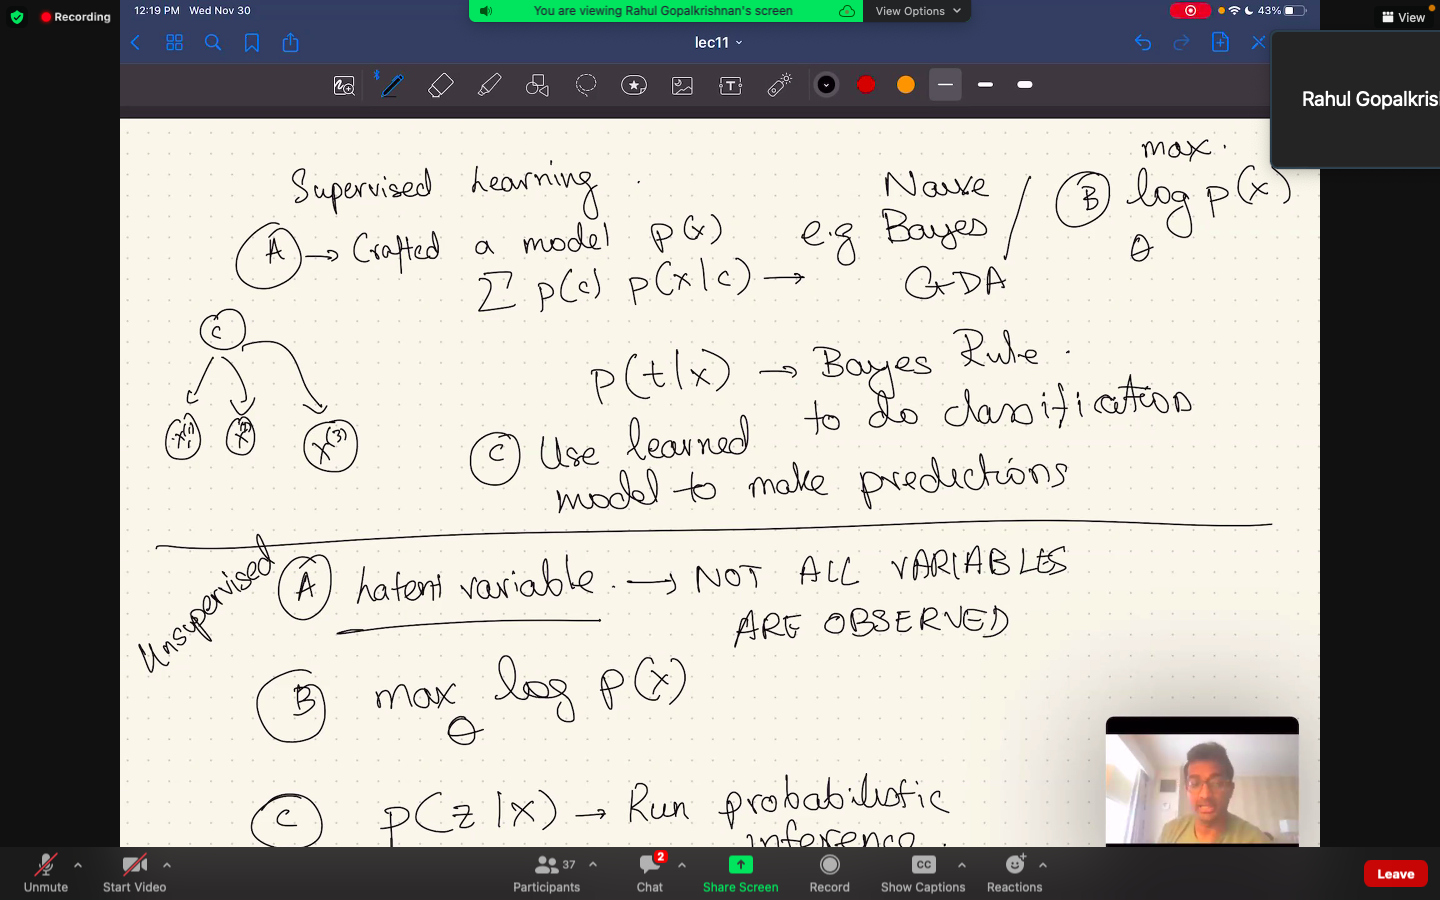 12:19 PM Wed Nov 30
Recording
You are viewing Rahul Gopalkrishnan's screen
View Options
43%
View
lec11
Rahul Gopalkris
Supervised Learning.
A → Crafted a model p(x) e.g Naive Bayes / GDA
∑ p(c) p(x|c) →
B max. log p(x)
θ
C
x₁⁽¹⁾
x⁽²⁾
x⁽³⁾
p(t|x) → Bayes Rule.
to do classification
C Use learned
model to make predictions
Unsupervised
A Latent variable. → NOT ALL VARIABLES
ARE OBSERVED
B max log p(x)
θ
C p(z|x) → Run probabilistic
inference.
Unmute
Start Video
Participants
37
Chat
2
Share Screen
Record
CC
Show Captions
Reactions
Leave